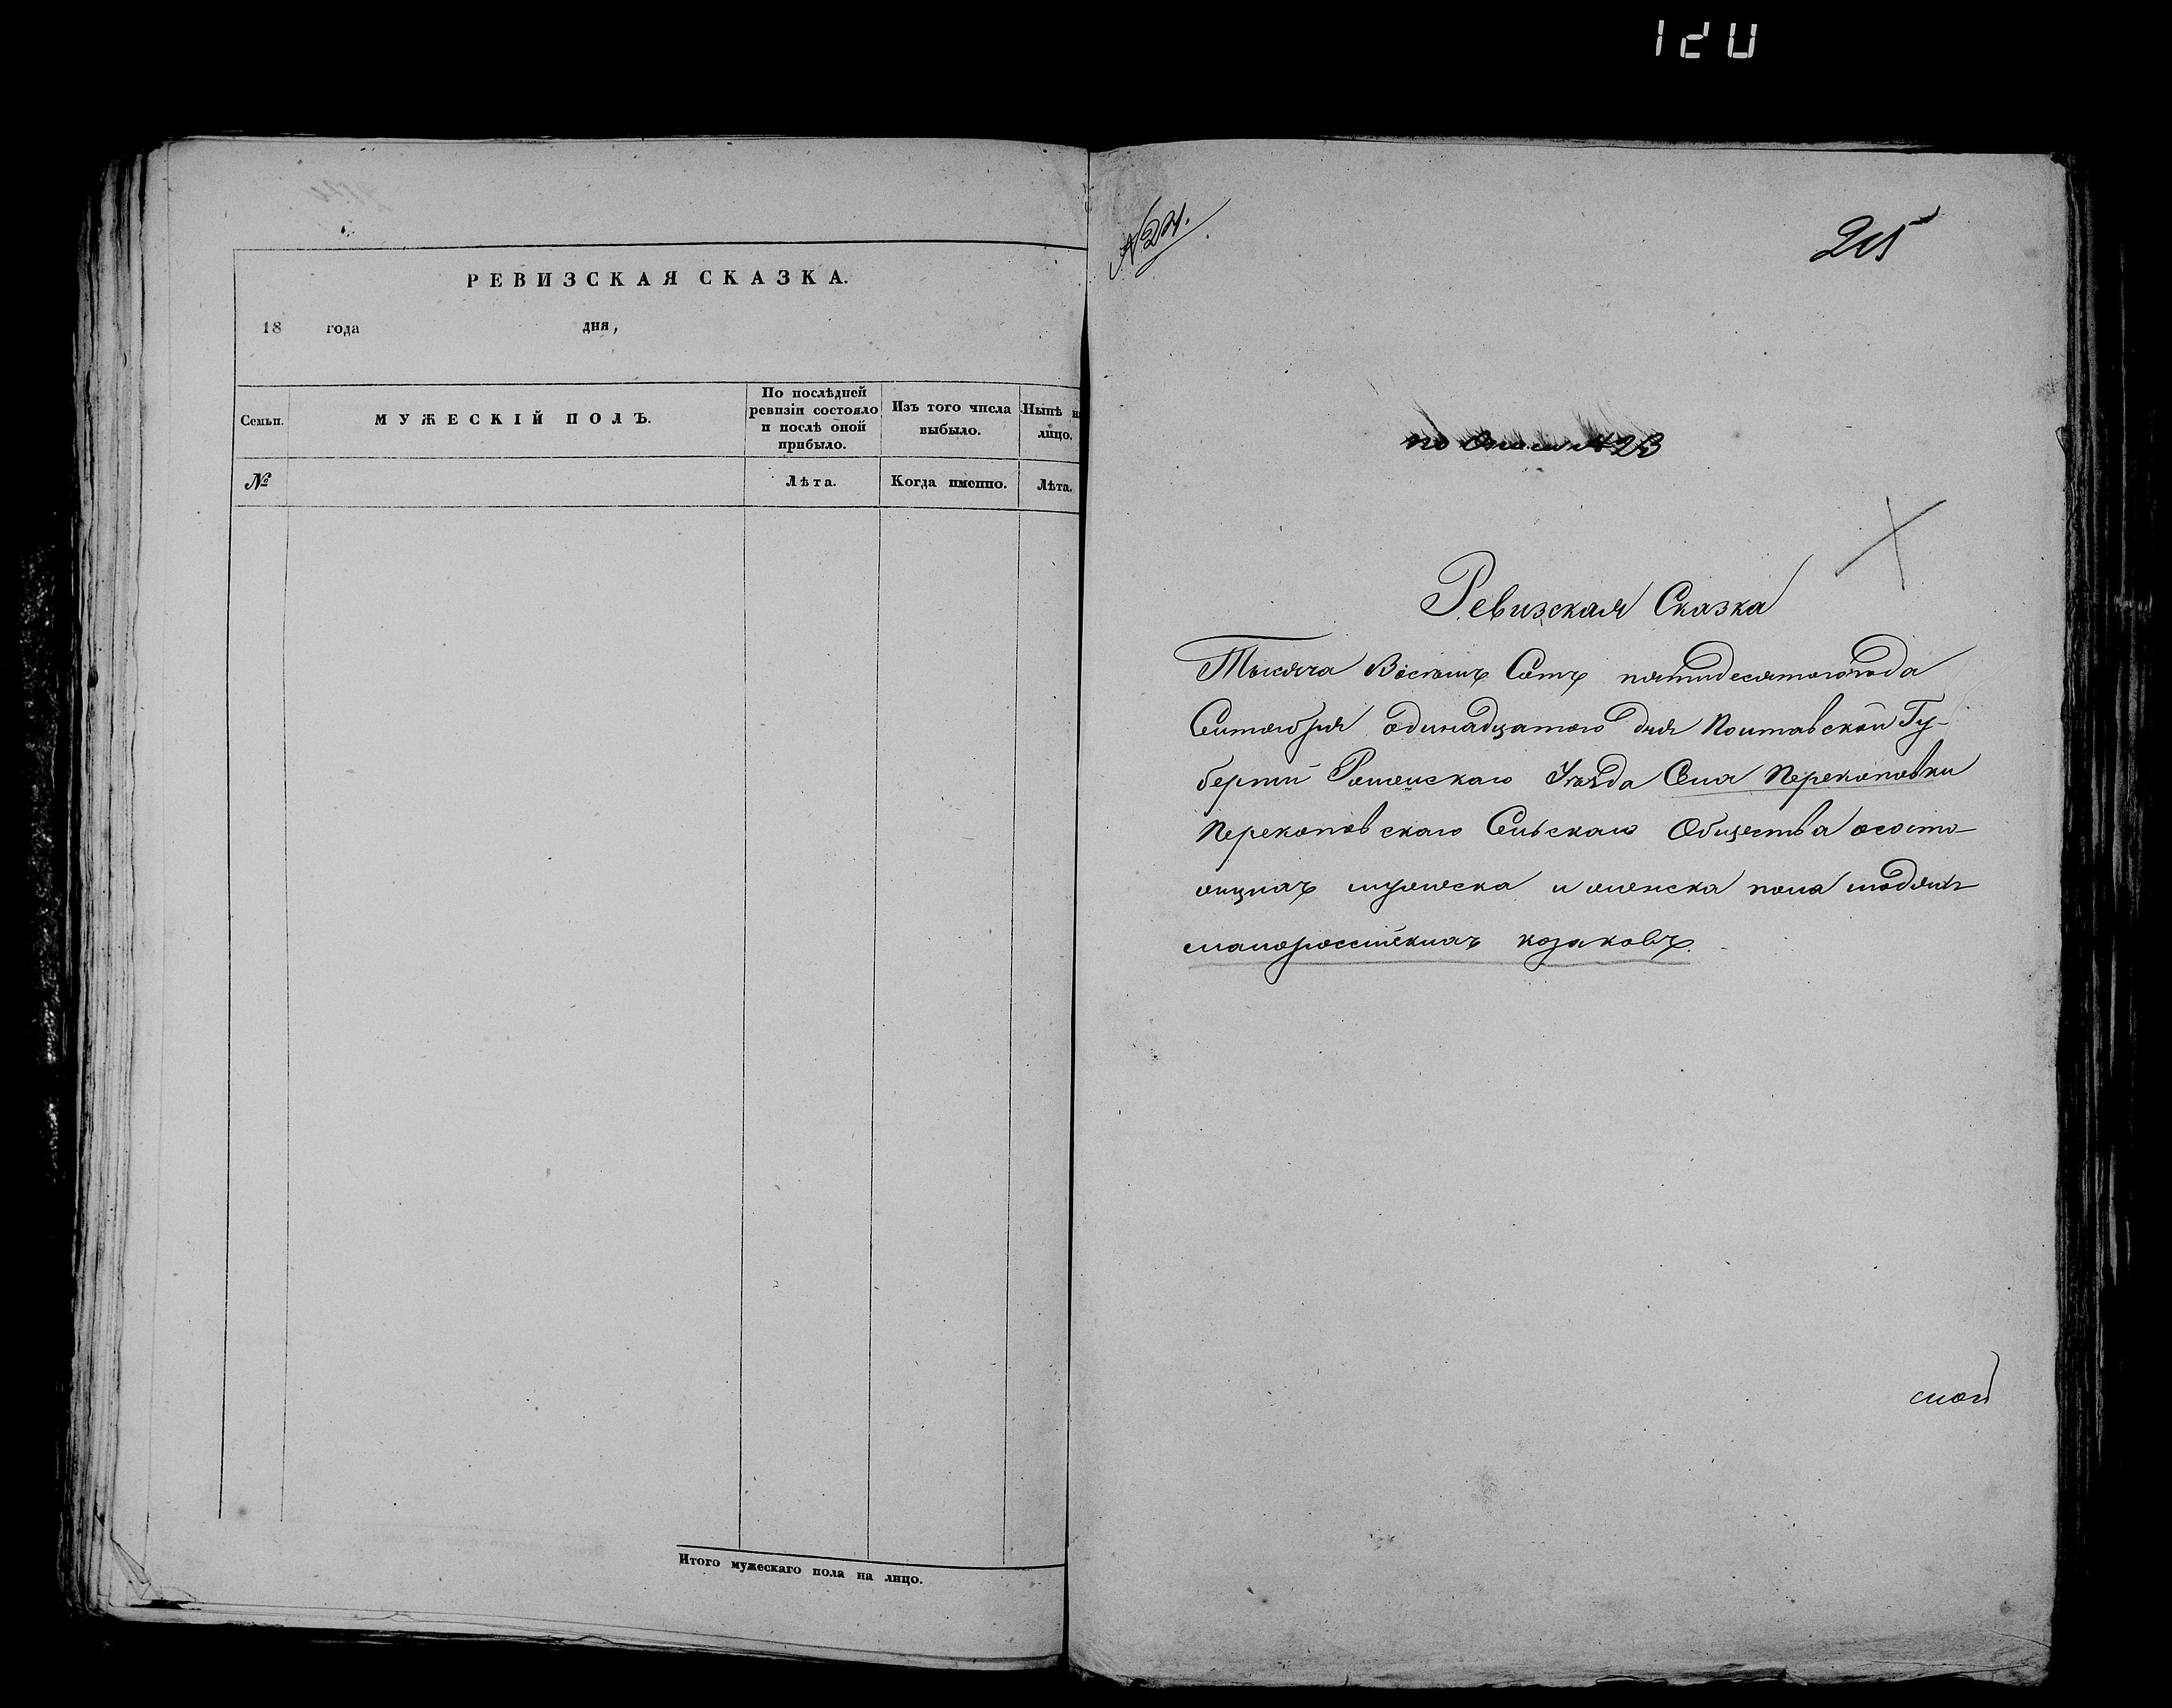 РЕВИЗСКАЯ СКАЗКА.
18 года дня,
Семьи.
МУЖЕСКІЙ ПОЛЪ.
По послѣдней
ревизіи состояло
и послѣ оной
прибыло.
Изъ того числа
выбыло.
Нынѣ н
лицо.
№
Лѣта.
Когда именно.
Лѣта.
Итого мужескаго пола на лицо.
№ 24.
215
по Описи № 23
Ревизская Сказка
Тысяча Восемь Сотъ пятидесятого года
Сентября одинадцатого дня Полтавской Гу-
берніи Роменскаго Уѣзда Села Перекоповки
Перекоповскаго Сельскаго Общества о состо-
ящихъ мужеска и женска пола людяхъ
малороссійскихъ козаковъ.